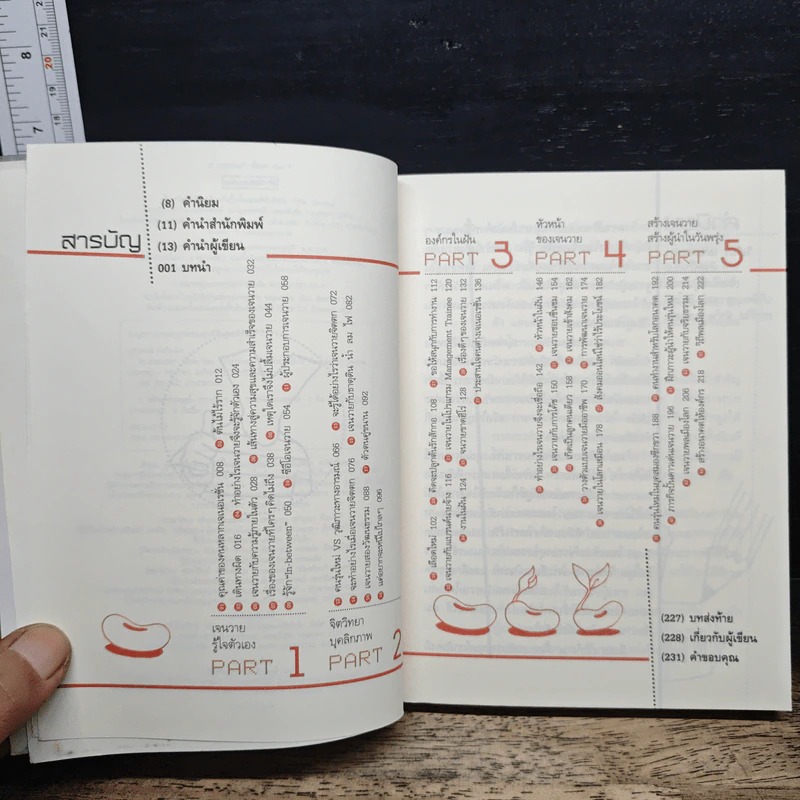 สารบัญ
(8) คำนิยม
(11) คำนำสำนักพิมพ์
(13) คำนำผู้เขียน
001 บทนำ
เจนวาย
รู้ใจตัวเอง
PART 1
คุณค่าของคนหลากเจเนอเรชั่น 008
ต้นไม้ไร้ราก 012
เดินทางผิด 016
ทำอย่างไรเจนวายจึงจะรู้จักตัวเอง 024
เจนวายกับความรู้ภายในตัว 028
เส้นทางสู่ความสุขและความสำเร็จของเจนวาย 032
เรื่องของเจนวายที่ใครๆ คิดไม่ถึง 038
เหตุใดเราจึงไม่ปลื้มเจนวาย 044
รู้จัก "In-between" 050
ซีอีโอเจนวาย 054
ผู้ประกอบการเจนวาย 058
จิตวิทยา
บุคลิกภาพ
PART 2
คนรุ่นใหม่ VS วุฒิภาวะทางอารมณ์ 066
จะรู้ได้อย่างไรว่าเจนวายจิตตก 072
จะทำอย่างไรเมื่อเจนวายจิตตก 076
เจนวายกับธาตุดิน น้ำ ลม ไฟ 082
เจนวายสองวัฒนธรรม 088
ตัวตนคู่ขนาน 092
แค่อยากจะหนีไปไกลๆ 096
องค์กรในฝัน
PART 3
เลือดใหม่ 102
คิดจะปลูกต้นรักสักกอ 108
ขอให้สนุกกับการทำงาน 112
เจนวายกับแบรนด์นายจ้าง 116
เจนวายในโปรแกรม Management Trainee 120
งานในฝัน 124
เจนวายขาดฮีโร่ 128
เรื่องดีๆ ของเจนวาย 132
ประสานใจคนต่างเจเนอเรชั่น 136
หัวหน้า
ของเจนวาย
PART 4
ทำอย่างไรเจนวายจึงจะเชื่อถือ 142
หัวหน้าในฝัน 146
เจนวายกับการโค้ช 150
เจนวายชอบชื่นชม 154
เกิดเป็นลูกคนเดียว 158
เจนวายเข้าสังคม 162
วางตัวแบบเจนวายมืออาชีพ 170
การพัฒนาเจนวาย 174
เจนวายในโลกเสมือน 178
สังคมออนไลน์ใช่ว่าไร้ประโยชน์ 182
สร้างเจนวาย
สร้างผู้นำในวันพรุ่ง
PART 5
คนรุ่นใหม่ในยุคสมองซีกขวา 188
คนทำงานสำหรับโลกอนาคต 192
ภารกิจปั้นดาวเด่นเจนวาย 196
ฝึกภาวะผู้นำให้คนรุ่นใหม่ 200
เจนวายพลเมืองโลก 206
เจนวายกับจริยธรรม 214
สร้างอนาคตให้องค์กร 218
วิถีพลเมืองโลก 222
(227) บทส่งท้าย
(228) เกี่ยวกับผู้เขียน
(231) คำขอบคุณ
8
7
21
20
19
18